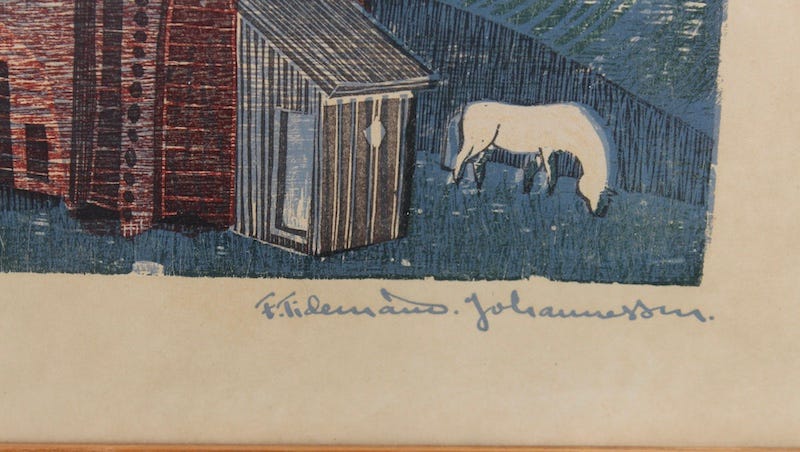 F. Tidemand. Johannessen.